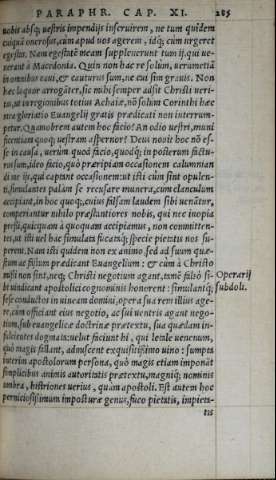 PARAPHR. CAP. XI. 285
nobis absq; uestris impendijs inseruirem, ne tum quidem
cuiquā onerosus, cum apud uos agerem, idq; cum urgeret
egestas. Nam egestatē meam suppleuerunt tum ij, qui ue-
nerant à Macedonia. Quin non hac re solùm, uerumetiā
in omnibus caui, & cauturus sum, ne cui sim grauis. Non
hæc loquor arrogāter, sic mihi semper adsit Christi ueri-
tas, ut in regionibus totius Achaiæ, nō solùm Corinthi hæc
mea gloriatio Euangelij gratis prædicati non interrum-
petur. Quamobrem autem hoc facio? An odio uestri, muni
ficentiam quoq; uestram aspernor? Deus nouit hoc nō es-
se in causa, uerùm quod facio, quodq; in posterum factu-
rus sum, ideo facio, quò præripiam occasionem calumnian
di me ijs, qui captant occasionem: ut isti cùm sint opulen-
ti, simulantes palàm se recusare munera, cum clanculum
accipiant, in hoc quoq;, cuius falsam laudem sibi uenātur,
comperiantur nihilo præstantiores nobis, qui nec inopia
preßi, quicquam à quoquam accipiamus, non committen-
tes, ut illi uel hac simulata fucataq; specie pietatis nos su-
perent. Nam isti quidem non ex animo, sed ad suum quæ-
stum ac fastum prædicant Euangelium: & cùm à Christo
mißi non sint, neq; Christi negotium agant, tamē falsò si- Operarij
bi uindicant apostolici cognominis honorem: simulantq; subdoli.
sese conductos in uineam domini, opera sua rem illius age-
re, cùm officiant eius negotio, ac sui uentris agant nego-
tium, sub euangelicæ doctrinæ prætextu, sua quædam in-
fulcientes dogmata: uelut faciunt hi, qui letale uenenum,
quò magis fallant, admiscent exquisitißimo uino: sumpta
interim apostolorum persona, quò magis etiam imponāt
simplicibus animis autoritatis prætextu, magniq; nominis
umbra, histriones uerius, quàm apostoli. Est autem hoc
perniciosißimum imposturæ genus, fuco pietatis, impieta-
tis